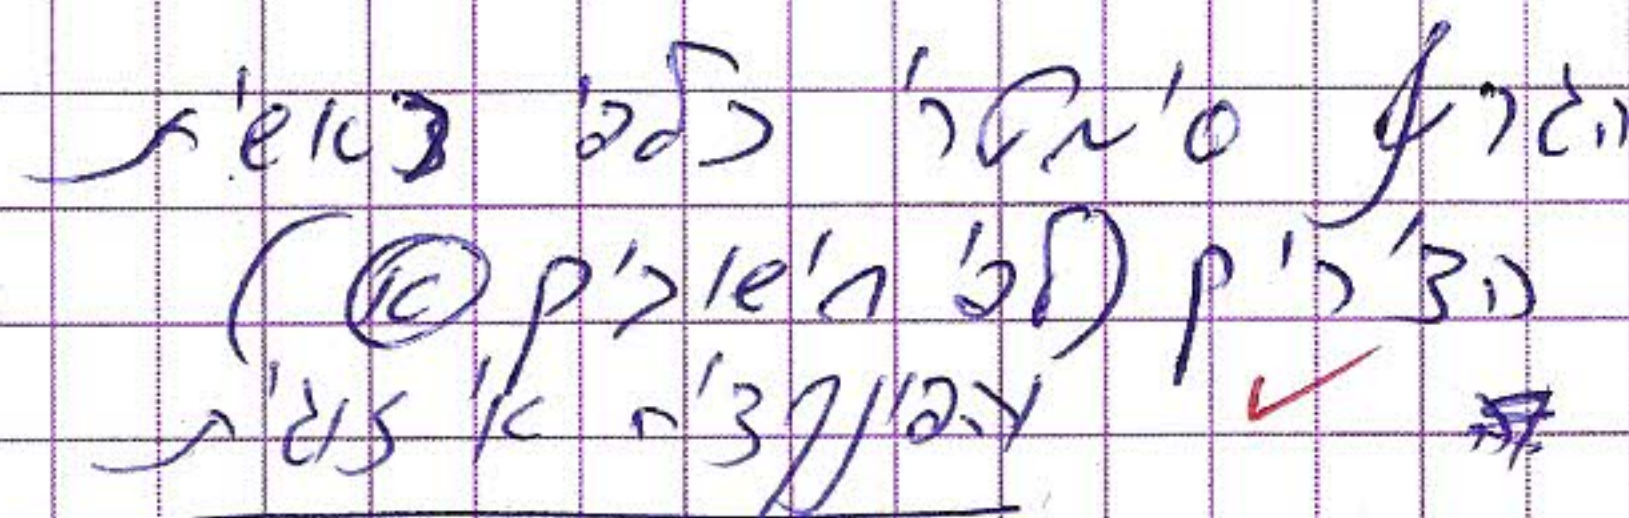 הגרף סימטרי כלפי ראשית
הצירים (לפי חישובים א)
והפונקציה אי זוגית